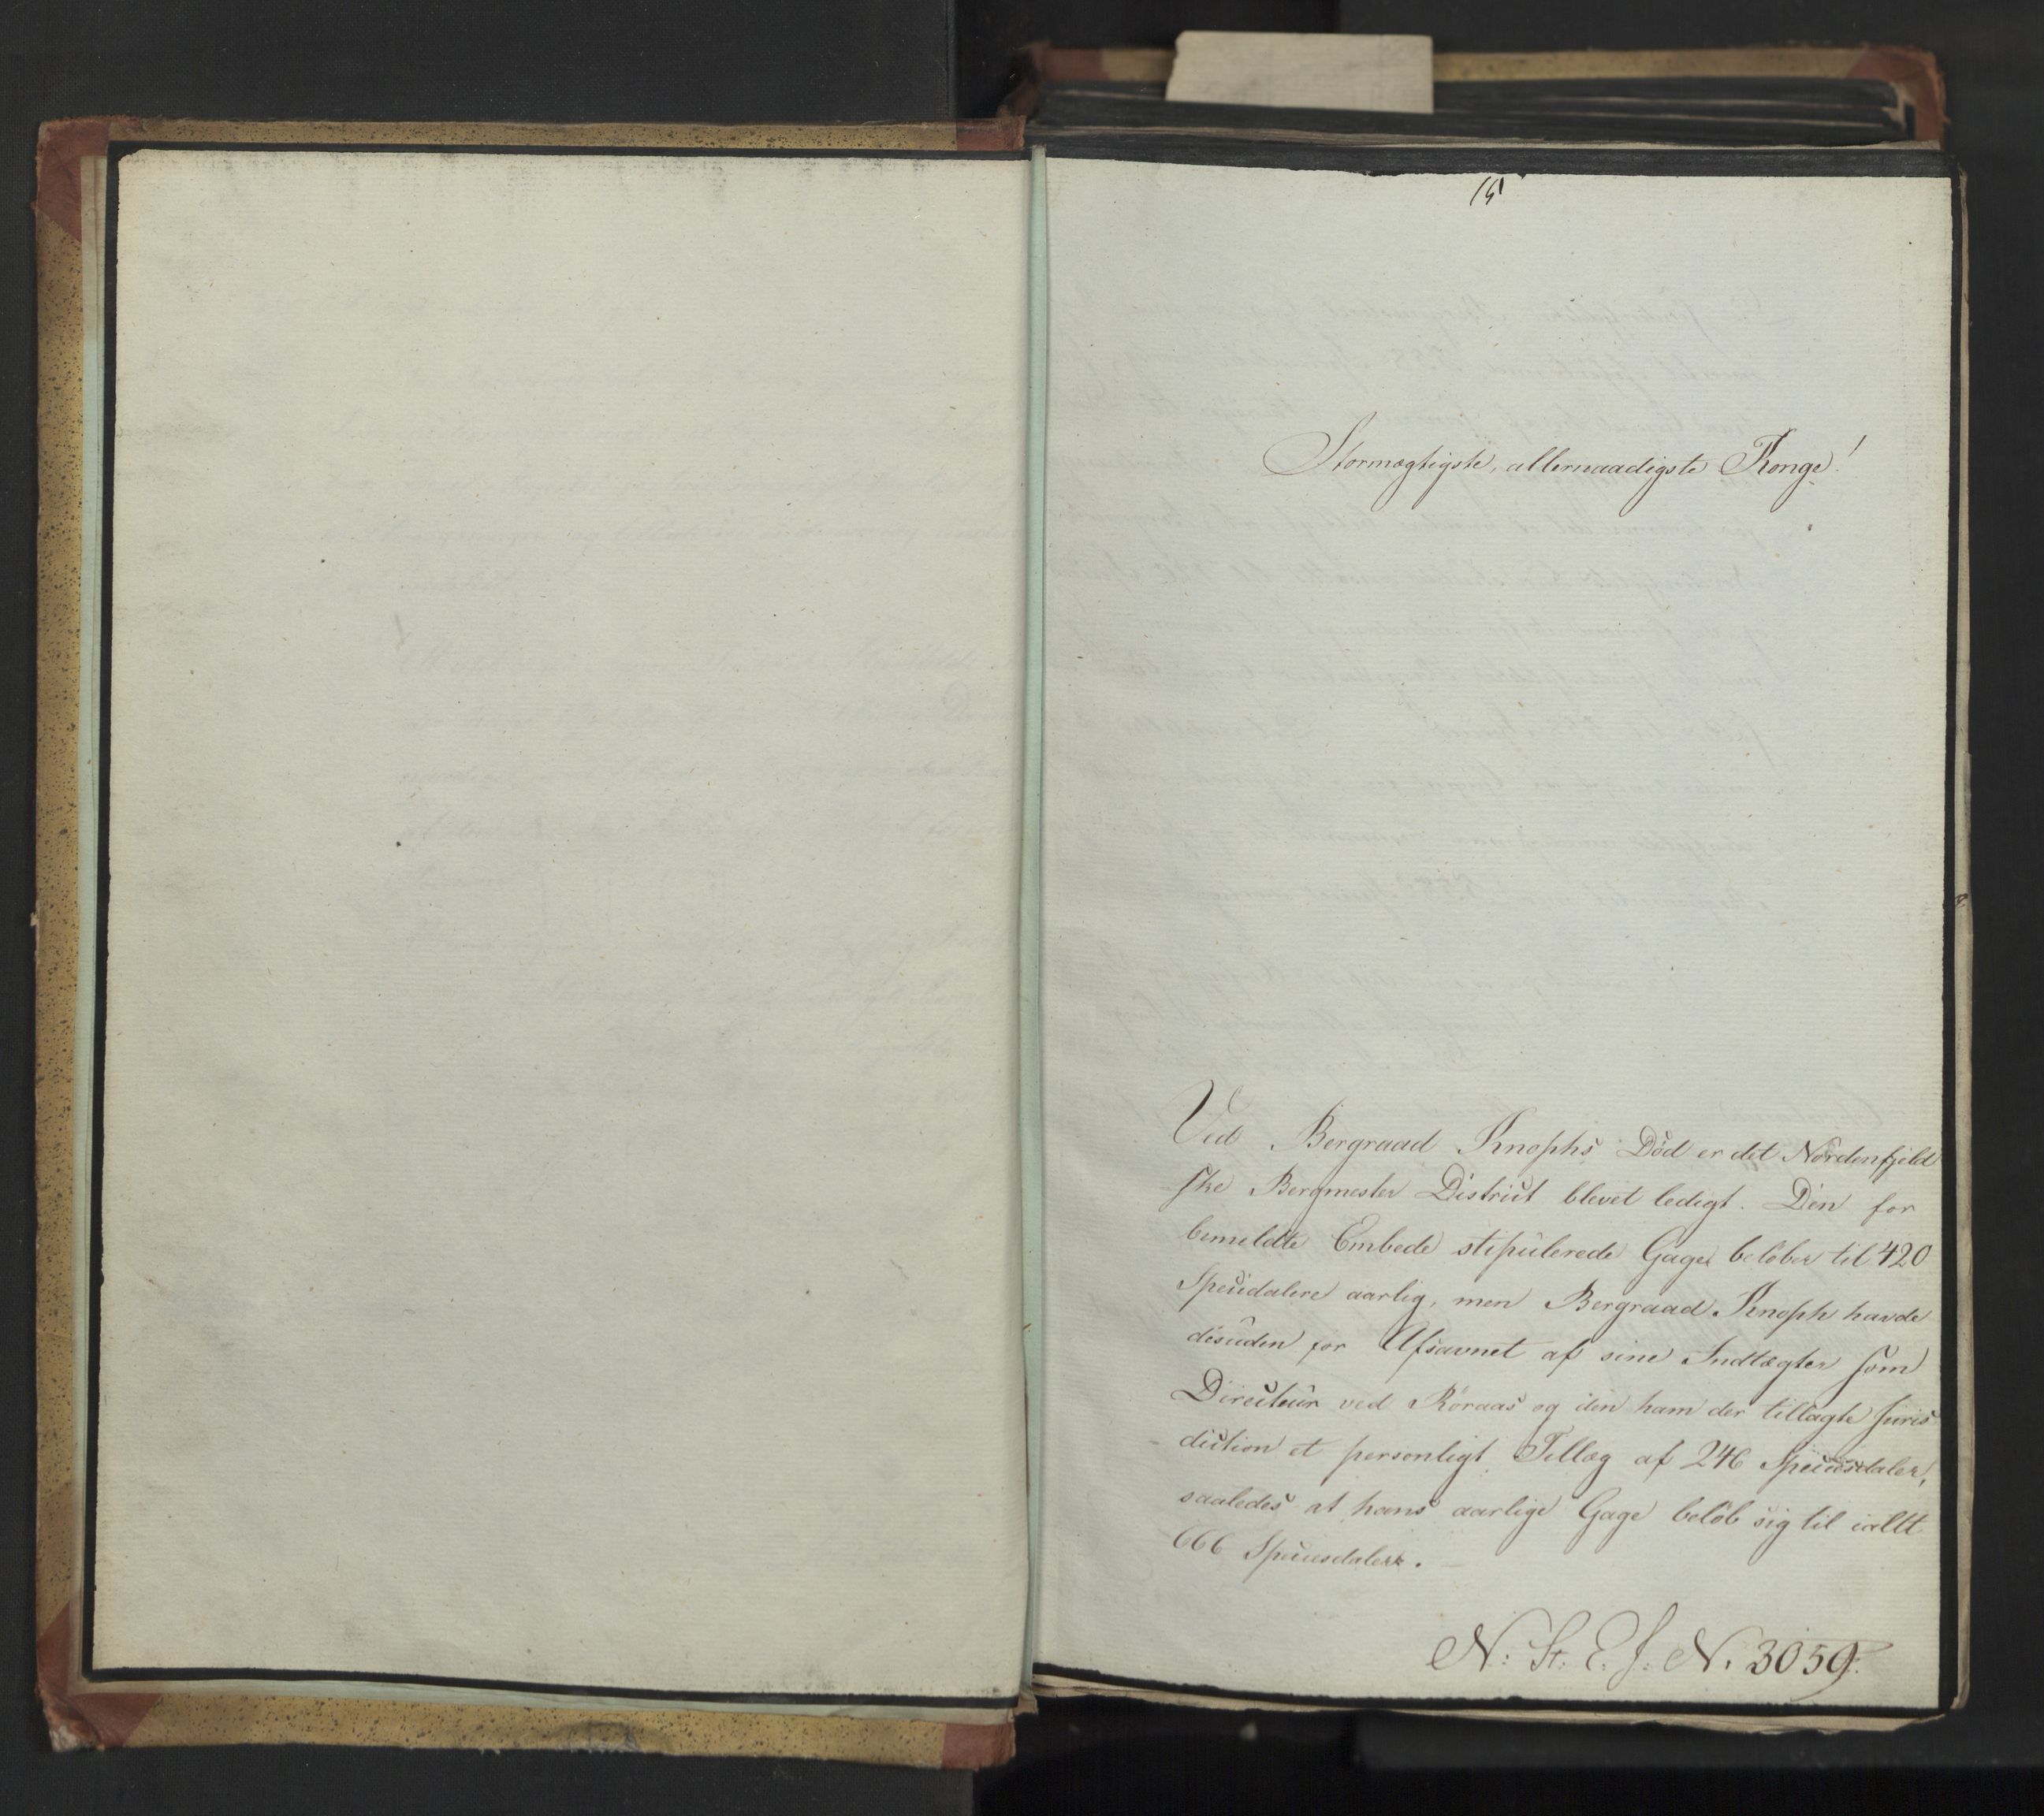 15
Stormægtigste, allernaadigste Konge!
Ved Bergraad Knophs Död er det Nordenfjeld
ske Bergmester District blevet ledigt. Den for
bemeldte Embede stipulerede Gage belöber til 420
Speciedalere aarlig, men Bergraad Knoph havde
desuden for Afsavnet af sine Indtægter som
Directeur ved Röraas og den ham der tillagte Juris
diction et personligt Tillæg af 246 Speciesdaler,
saaledes at hans aarlige Gage belöb sig til ialt
666 Speciesdaler.
N: St: E. J: N. 3059.